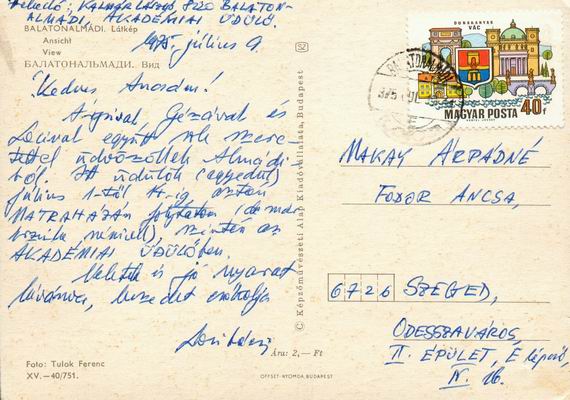 Feladó: KALMÁR LÁSZLÓ, 8220 BALATON-
ALMÁDI, AKADÉMIAI ÜDÜLŐ.
BALATONALMÁDI. Látkép
Ansicht
View
БАЛАТОНАЛЬМАДИ. Вид
1975. július 9.
Kedves Ancsám!
Ágival, Gézával és
együtt sok szere-
tettel üdvözöllek Almádi-
ból. Itt üdülök (egyedül)
július 1-től 14-ig, aztán
MÁTRAHÁZÁN folytatom (de már
nénivel), szintén az
AKADÉMIAI ÜDÜLŐBEN.
és jó nyarat
kívánva, kezedet csókolja
Laci bácsi
Foto: Tulok Ferenc
XV.—40/751.
Ára: 2,— Ft
OFFSET-NYOMDA, BUDAPEST
© Képzőművészeti Alap Kiadóvállalata, Budapest
SZ
DUNAKANYAR
VÁC
MAGYAR POSTA 40f
BALATONALMÁDI
MAKAY ÁRPÁDNÉ
FODOR ANCSA,
6726 SZEGED,
ODESSZAVÁROS,
II. ÉPÜLET, E lépcső,
IV. 16.